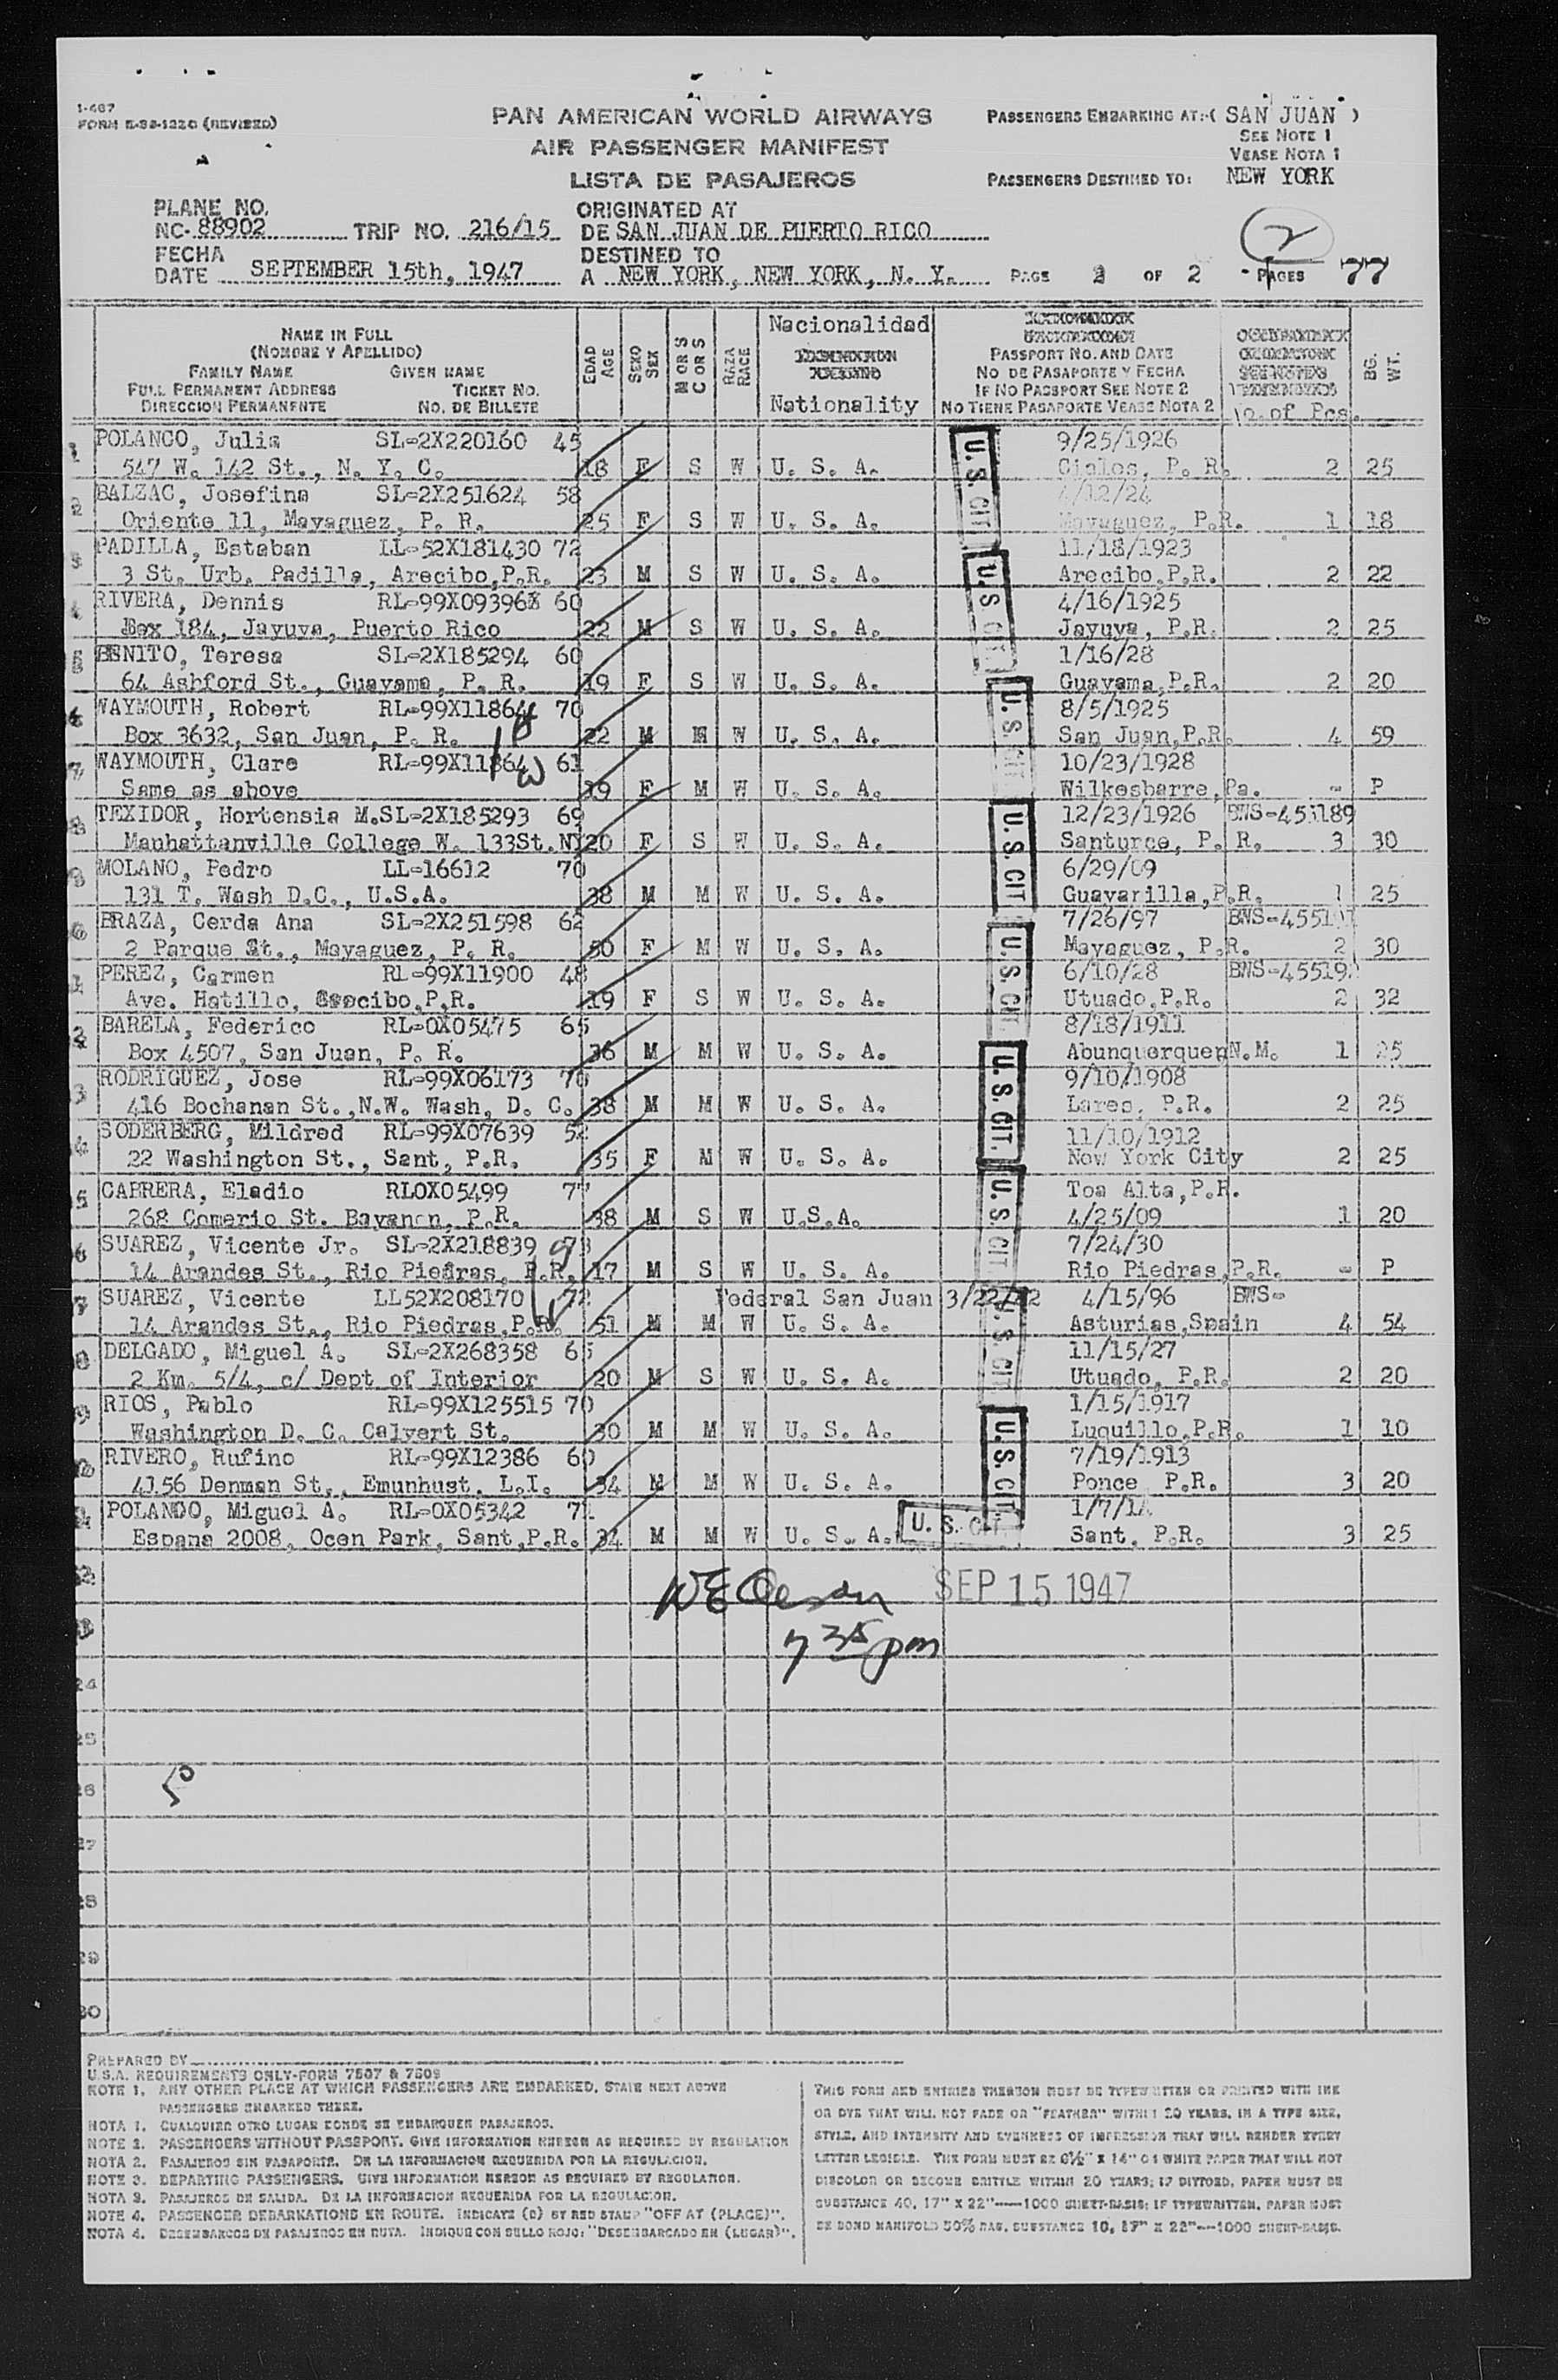 I-467
FORM E-38-1220 (REVISED)
PAN AMERICAN WORLD AIRWAYS
AIR PASSENGER MANIFEST
LISTA DE PASAJEROS
PASSENGERS EMBARKING AT:-( SAN JUAN )
SEE NOTE 1
VEASE NOTA 1
PASSENGERS DESTINED TO: NEW YORK
PLANE NO.
NC-88902 TRIP NO. 216/15
ORIGINATED AT
DE SAN JUAN DE PUERTO RICO
FECHA
DATE SEPTEMBER 15th, 1947
DESTINED TO
A NEW YORK, NEW YORK, N. Y.
PAGE 2 OF 2 PAGES
2
77
NAME IN FULL
(NOMBRE Y APELLIDO)
FAMILY NAME GIVEN NAME
FULL PERMANENT ADDRESS TICKET NO.
DIRECCION PERMANENTE NO. DE BILLETE
EDAD AGE
SEXO SEX
M OR S C OR S
RAZA RACE
Nacionalidad
Nationality
PASSPORT NO. AND DATE
NO DE PASAPORTE Y FECHA
IF NO PASSPORT SEE NOTE 2
NO TIENE PASAPORTE VEASE NOTA 2
No. of Pcs.
BG. WT.
1 POLANCO, Julia SL-2X220160 45 9/25/1926
547 W. 142 St., N. Y. C. 18 F S W U. S. A. Ciales, P. R. 2 25
2 BALZAC, Josefina SL-2X251624 58 4/12/24
Oriente 11, Mayaguez, P. R. 25 F S W U. S. A. Mayaguez, P.R. 1 18
3 PADILLA, Esteban LL-52X181430 72 11/18/1923
3 St. Urb. Padilla, Arecibo,P.R. 23 M S W U. S. A. Arecibo,P.R. 2 22
4 RIVERA, Dennis RL-99X09396X 60 4/16/1925
Box 184, Jayuya, Puerto Rico 22 M S W U. S. A. Jayuya, P.R. 2 25
5 BENITO, Teresa SL-2X185294 60 1/16/28
64 Ashford St., Guayama, P. R. 19 F S W U. S. A. Guayama,P.R. 2 20
6 WAYMOUTH, Robert RL-99X11864 70 8/5/1925
Box 3632, San Juan, P. R. 22 M M W U. S. A. San Juan,P.R. 4 59
7 WAYMOUTH, Clare RL-99X11864 61 10/23/1928
Same as above 19 F M W U. S. A. Wilkesbarre, Pa. - P
8 TEXIDOR, Hortensia M.SL-2X185293 69 12/23/1926 BWS-453189
Manhattanville College W. 133St.NY 20 F S W U. S. A. Santurce, P. R. 3 30
9 MOLANO, Pedro LL-16612 70 6/29/09
131 T. Wash D.C., U.S.A. 38 M M W U. S. A. Guayarilla,P.R. 1 25
BRAZA, Cerda Ana SL-2X251598 62 7/26/97
2 Parque St., Mayaguez, P. R. 50 F M W U. S. A. Mayaguez, P.R. 2 30
PEREZ, Carmen RL-99X11900 48 6/10/28
Ave. Hatillo, Arecibo,P.R. 19 F S W U. S. A. Utuado,P.R. 2 32
2 BARELA, Federico RL-0X05475 65 8/18/1911
Box 4507, San Juan, P. R. 36 M M W U. S. A. Abunquerquen N.M. 1 25
3 RODRIGUEZ, Jose RL-99X06173 70 9/10/1908
416 Bochanan St.,N.W. Wash, D. C. 38 M M W U. S. A. Lares, P.R. 2 25
4 SODERBERG, Mildred RL-99X07639 52 11/10/1912
22 Washington St., Sant, P.R. 35 F M W U. S. A. New York City 2 25
5 CABRERA, Eladio RLOX05499 77 Toa Alta,P.R.
268 Comerio St. Bayamon, P.R. 38 M S W U.S.A. 4/25/09 1 20
6 SUAREZ, Vicente Jr. SL-2X218839 73 7/24/30
14 Arandes St., Rio Piedras, P.R. 17 M S W U. S. A. Rio Piedras,P.R. - P
7 SUAREZ, Vicente LL52X208170 72 Federal San Juan 3/22/22 4/15/96 BWS-
14 Arandes St., Rio Piedras,P.R. 51 M M W U. S. A. Asturias,Spain 4 54
8 DELGADO, Miguel A. SL-2X268358 65 11/15/27
2 Km. 5/4, c/ Dept of Interior 20 M S W U. S. A. Utuado, P.R. 2 20
9 RIOS, Pablo RL-99X125515 70 1/15/1917
Washington D. C. Calvert St. 30 M M W U. S. A. Luquillo,P.R. 1 10
RIVERO, Rufino RL-99X12386 60 7/19/1913
4156 Denman St., Emunhust, L.I. 34 M M W U. S. A. Ponce P.R. 3 20
POLANDO, Miguel A. RL-0X05342 71
Espana 2008, Ocen Park, Sant,P.R. 34 M M W U. S. A. Sant, P.R. 3 25
U. S. CIT.
U. S. CIT.
U. S. CIT.
U. S. CIT.
U. S. CIT.
U. S. CIT.
U. S. CIT.
U. S. CIT.
U. S. CIT.
U. S. CIT.
SEP 15 1947
7 35 pm
24
25
26 50
27
28
29
30
PREPARED BY
U.S.A. REQUIREMENTS ONLY-FORM 7507 & 7509
NOTE 1. ANY OTHER PLACE AT WHICH PASSENGERS ARE EMBARKED, STATE NEXT ABOVE
PASSENGERS EMBARKED THERE.
NOTA 1. CUALQUIER OTRO LUGAR DONDE SE EMBARQUEN PASAJEROS.
NOTE 2. PASSENGERS WITHOUT PASSPORT. GIVE INFORMATION HEREON AS REQUIRED BY REGULATION
NOTA 2. PASAJEROS SIN PASAPORTE. DE LA INFORMACION REQUERIDA POR LA REGULACION.
NOTE 3. DEPARTING PASSENGERS. GIVE INFORMATION HEREON AS REQUIRED BY REGULATION.
NOTA 3. PASAJEROS DE SALIDA. DE LA INFORMACION REQUERIDA POR LA REGULACION.
NOTE 4. PASSENGER DEBARKATIONS EN ROUTE. INDICATE (D) BY RED STAMP "OFF AT (PLACE)".
NOTA 4. DESEMBARCOS DE PASAJEROS EN RUTA. INDIQUE CON SELLO ROJO: "DESEMBARCADO EN (LUGAR)".
THIS FORM AND ENTRIES THEREON MUST BE TYPEWRITTEN OR PRINTED WITH INK
OR DYE THAT WILL NOT FADE OR "FEATHER" WITHIN 20 YEARS, IN A TYPE SIZE,
STYLE, AND INTENSITY AND EVENNESS OF IMPRESSION THAT WILL RENDER EVERY
LETTER LEGIBLE. THE FORM MUST BE 8½" X 14" ON WHITE PAPER THAT WILL NOT
DISCOLOR OR BECOME BRITTLE WITHIN 20 YEARS; IF DITTOED, PAPER MUST BE
SUBSTANCE 40, 17" X 22"—1000 SHEET-BASIS; IF TYPEWRITTEN, PAPER MUST
BE BOND MANIFOLD 50% RAG, SUBSTANCE 10, 17" X 22"—1000 SHEET-BASIS.